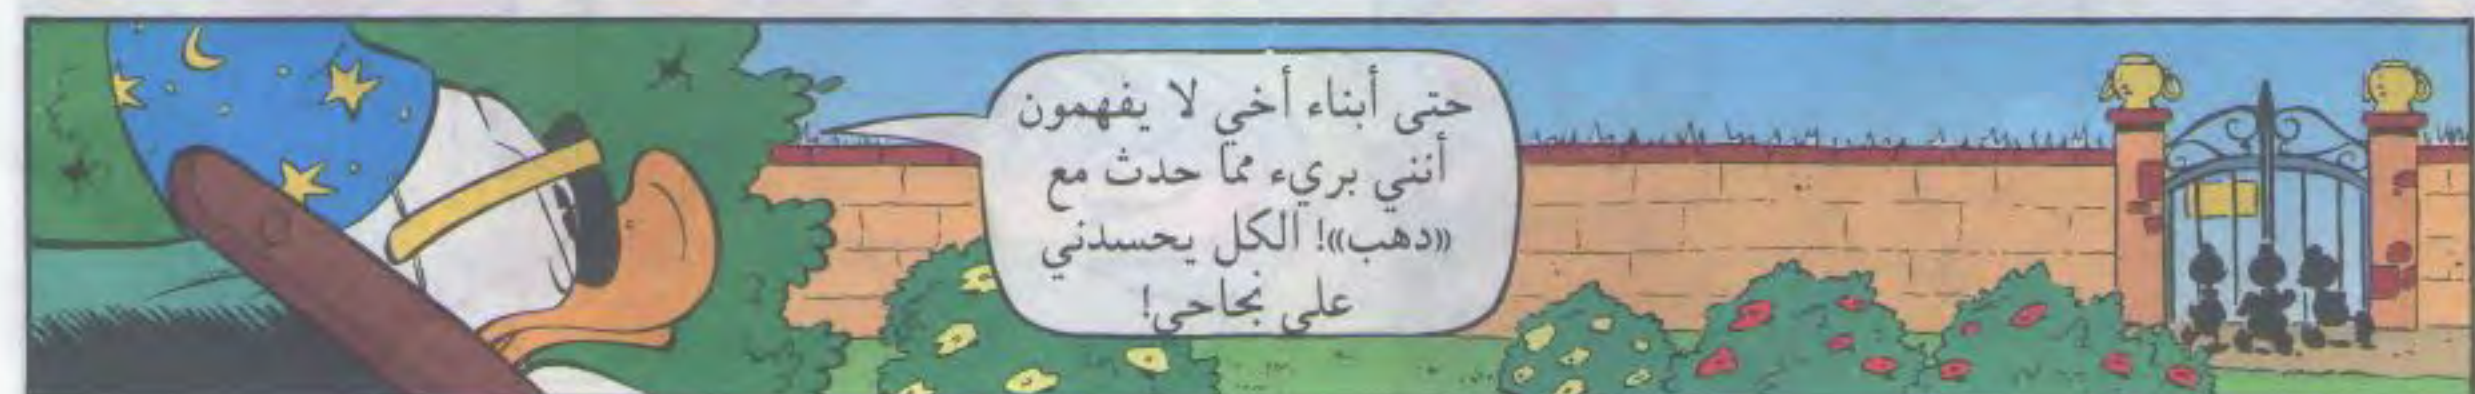 حتى أبناء أخي لا يفهمون
أنني بريء مما حدث مع
«دهب»! الكل يحسدني
على نجاحي!